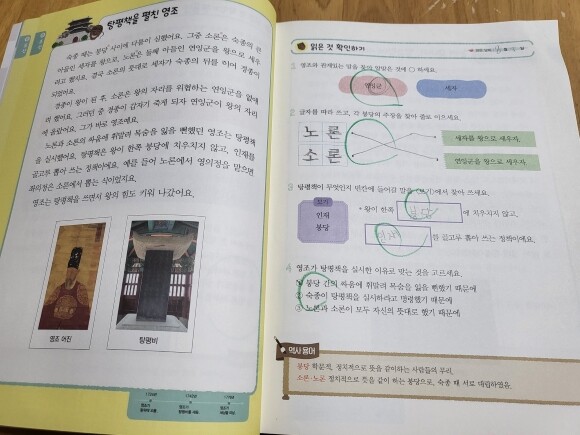 탕평책을 펼친 영조
숙종 때는 붕당 사이에 다툼이 심했어요. 그중 소론은 숙종의 큰
아들인 세자를 왕으로, 노론은 둘째 아들인 연잉군을 왕으로 세우
려고 했지요. 결국 소론의 뜻대로 세자가 숙종의 뒤를 이어 경종이
되었어요.
경종이 왕이 된 후, 소론은 왕의 자리를 위협하는 연잉군을 없애
려 했어요. 그러던 중 경종이 갑자기 죽게 되자 연잉군이 왕의 자리
에 올랐어요. 그가 바로 영조예요.
노론과 소론의 싸움에 휘말려 목숨을 잃을 뻔했던 영조는 탕평책
을 실시했어요. 탕평책은 왕이 한쪽 붕당에 치우치지 않고, 인재를
골고루 뽑아 쓰는 정책이에요. 예를 들어 노론에서 영의정을 맡으면
좌의정은 소론에서 뽑는 식이었지요.
영조는 탕평책을 쓰면서 왕의 힘도 키워 나갔어요.
영조 어진
탕평비
읽은 것 확인하기
1 영조와 관계있는 말을 찾아 알맞은 것에 ○ 하세요.
연잉군
세자
2 글자를 따라 쓰고, 각 붕당의 주장을 찾아 줄로 이으세요.
노론
세자를 왕으로 세우자.
소론
연잉군을 왕으로 세우자.
3 탕평책이 무엇인지 빈칸에 들어갈 말을 <보기>에서 찾아 쓰세요.
보기
인재
붕당
• 왕이 한쪽 붕당 에 치우치지 않고,
인재 를 골고루 뽑아 쓰는 정책이에요.
4 영조가 탕평책을 실시한 이유로 맞는 것을 고르세요.
① 붕당 간의 싸움에 휘말려 목숨을 잃을 뻔했기 때문에
② 숙종이 탕평책을 실시하라고 명령했기 때문에
③ 노론과 소론이 모두 자신의 뜻대로 했기 때문에
역사 용어
붕당 학문적, 정치적으로 뜻을 같이하는 사람들의 무리.
소론·노론 정치적으로 뜻을 같이 하는 붕당으로, 숙종 때 서로 대립하였음.